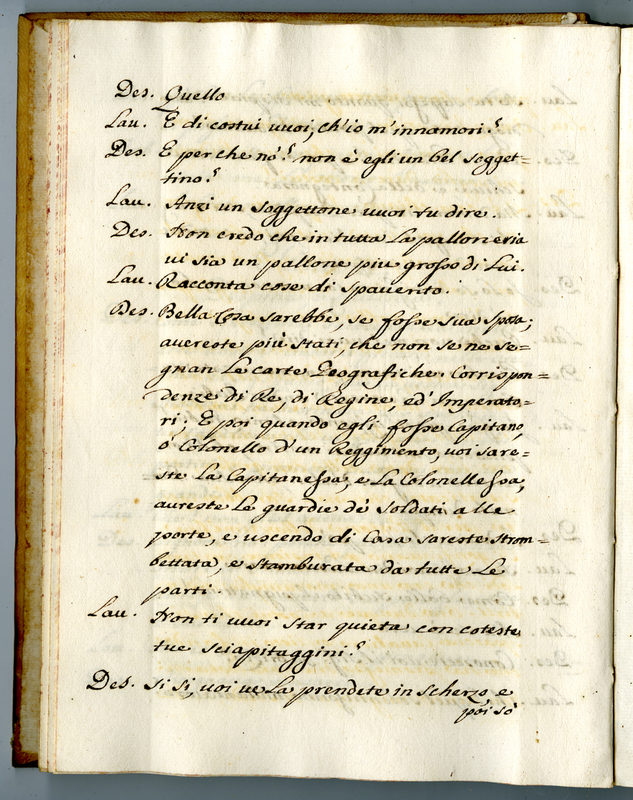 Des. Quello
Lau. E di costui vuoi, ch'io m'innamori?
Des. E perche nò? non è egli un bel sogget=
tino?
Lau. Anzi un soggettone vuoi tu dire.
Des. Non credo che in tutta La palloneria
vi sia un pallone piu grosso di Lui.
Lau. Racconta cose di spavento.
Des. Bella Cosa sarebbe, se fosse sua sposa;
avereste più Stati, che non se ne se=
gnan Le carte Geografiche. Corrispon=
denze di Re, di Regine, ed' Imperato=
ri; E poi quando egli fosse Capitano,
ó Colonello d'un Reggimento, voi sare=
=ste La Capitanessa, e La Colonellessa,
avreste Le guardie dè Soldati alle
porte, e uscendo di Casa sareste strom=
bettata, e stamburata da tutte Le
parti.
Lau. Non ti vuoi star quieta con coteste
tue sciapitaggini?
Des. Si si, voi ve La prendete in scherzo, e
poi sò